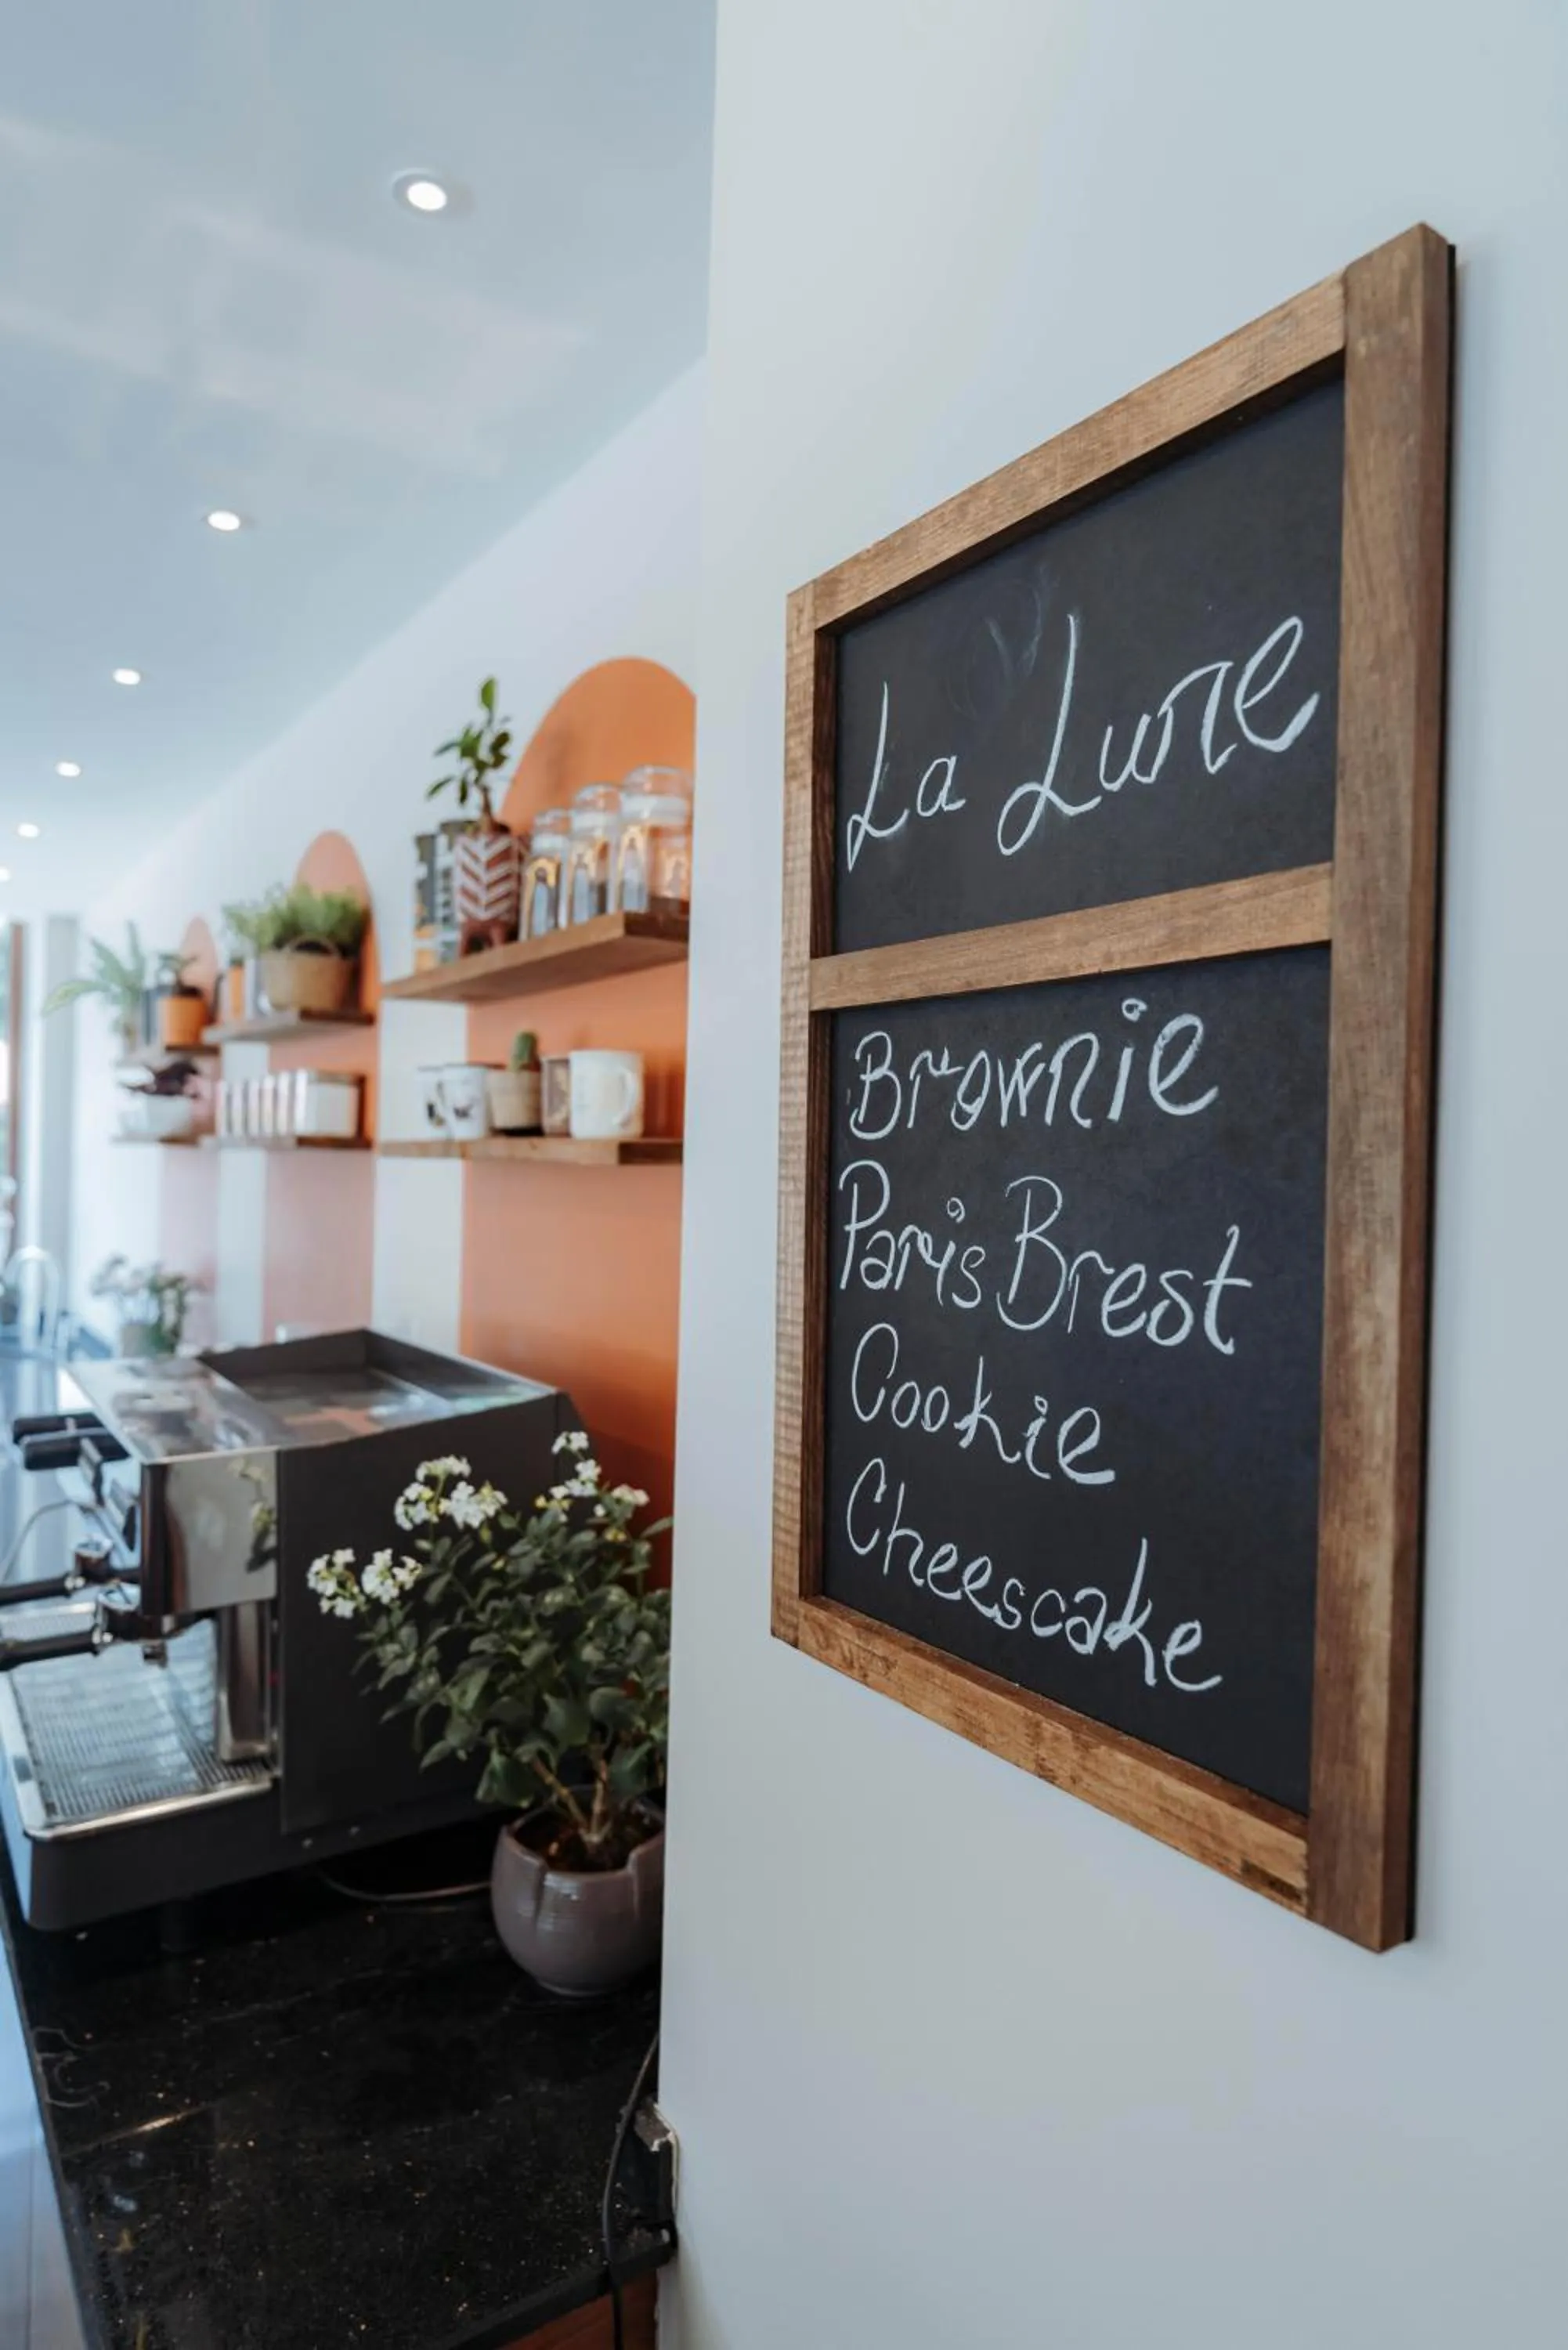 La Lune
Brownie
Paris Brest
Cookie
Cheesecake